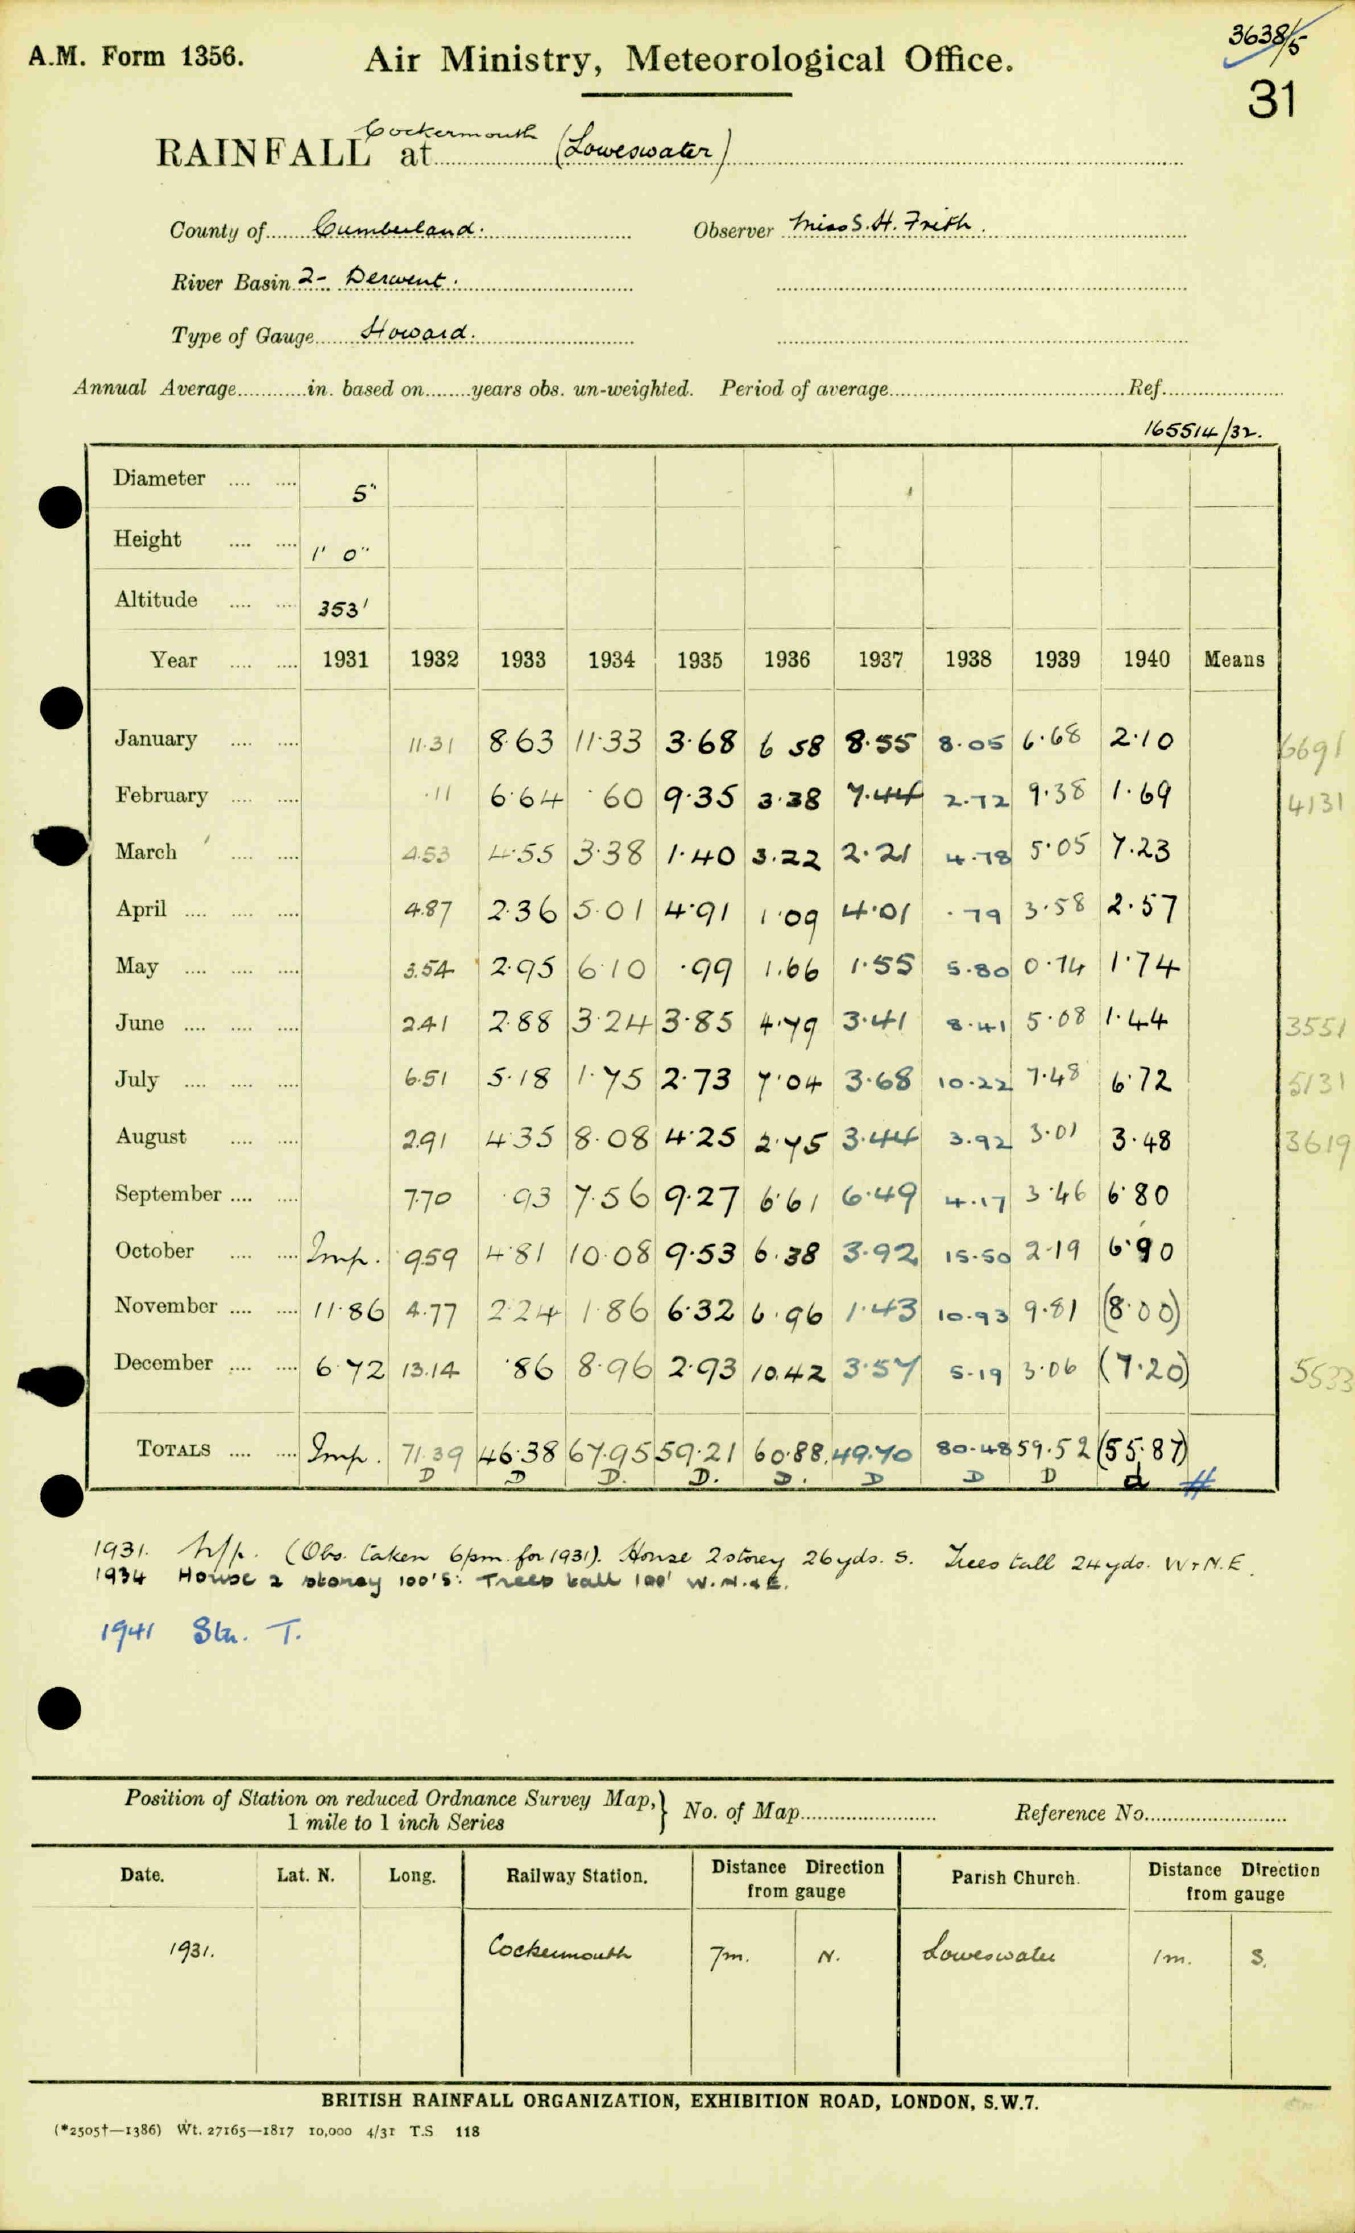 3638/5
A.M. Form 1356. Air Ministry, Meteorological Office.
31
RAINFALL at Cockermouth (Loweswater)
County of Cumberland. Observer Miss S. H. Frith.
River Basin 2- Derwent.
Type of Gauge Howard.
Annual Average in. based on years obs. un-weighted. Period of average Ref.
165514/32.
Diameter 5"
Height 1' 0"
Altitude 353'
Year 1931 1932 1933 1934 1935 1936 1937 1938 1939 1940 Means
January 11.31 8.63 11.33 3.68 6 58 8.55 8.05 6.68 2.10 6691
February .11 6.64 .60 9.35 3.38 7.44 2.72 9.38 1.69 4131
March 4.53 4.55 3.38 1.40 3.22 2.21 4.78 5.05 7.23
April 4.87 2.36 5.01 4.91 1.09 4.01 .79 3.58 2.57
May 3.54 2.95 6.10 .99 1.66 1.55 5.80 0.74 1.74
June 2.41 2.88 3.24 3.85 4.79 3.41 8.41 5.08 1.44 3551
July 6.51 5.18 1.75 2.73 7.04 3.68 10.22 7.48 6.72 5131
August 2.91 4.35 8.08 4.25 2.75 3.44 3.92 3.01 3.48 3619
September 7.70 .93 7.56 9.27 6.61 6.49 4.17 3.46 6.80
October Imp. 9.59 4.81 10.08 9.53 6.38 3.92 15.50 2.19 6.90
November 11.86 4.77 2.24 1.86 6.32 6.96 1.43 10.93 9.81 (8.00)
December 6.72 13.14 .86 8.96 2.93 10.42 3.57 5.19 3.06 (7.20) 5533
TOTALS Imp. 71.39 46.38 67.95 59.21 60.88 49.70 80.48 59.52 (55.87)
D D D. D. D. D D D d #
1931. (Obs. taken 6pm for 1931). House 2 storey 26yds. S. Trees tall 24yds. W+N.E.
1934 House 2 storey 100'S. Trees tall 100' W.N.&E.
1941 Stn. T.
Position of Station on reduced Ordnance Survey Map, 1 mile to 1 inch Series } No. of Map Reference No.
Date. Lat. N. Long. Railway Station. Distance Direction from gauge Parish Church. Distance Direction from gauge
1931. Cockermouth 7m. N. Loweswater 1m. S.
BRITISH RAINFALL ORGANIZATION, EXHIBITION ROAD, LONDON, S.W.7.
(*2505†—1386) Wt. 27165—1817 10,000 4/31 T.S 118